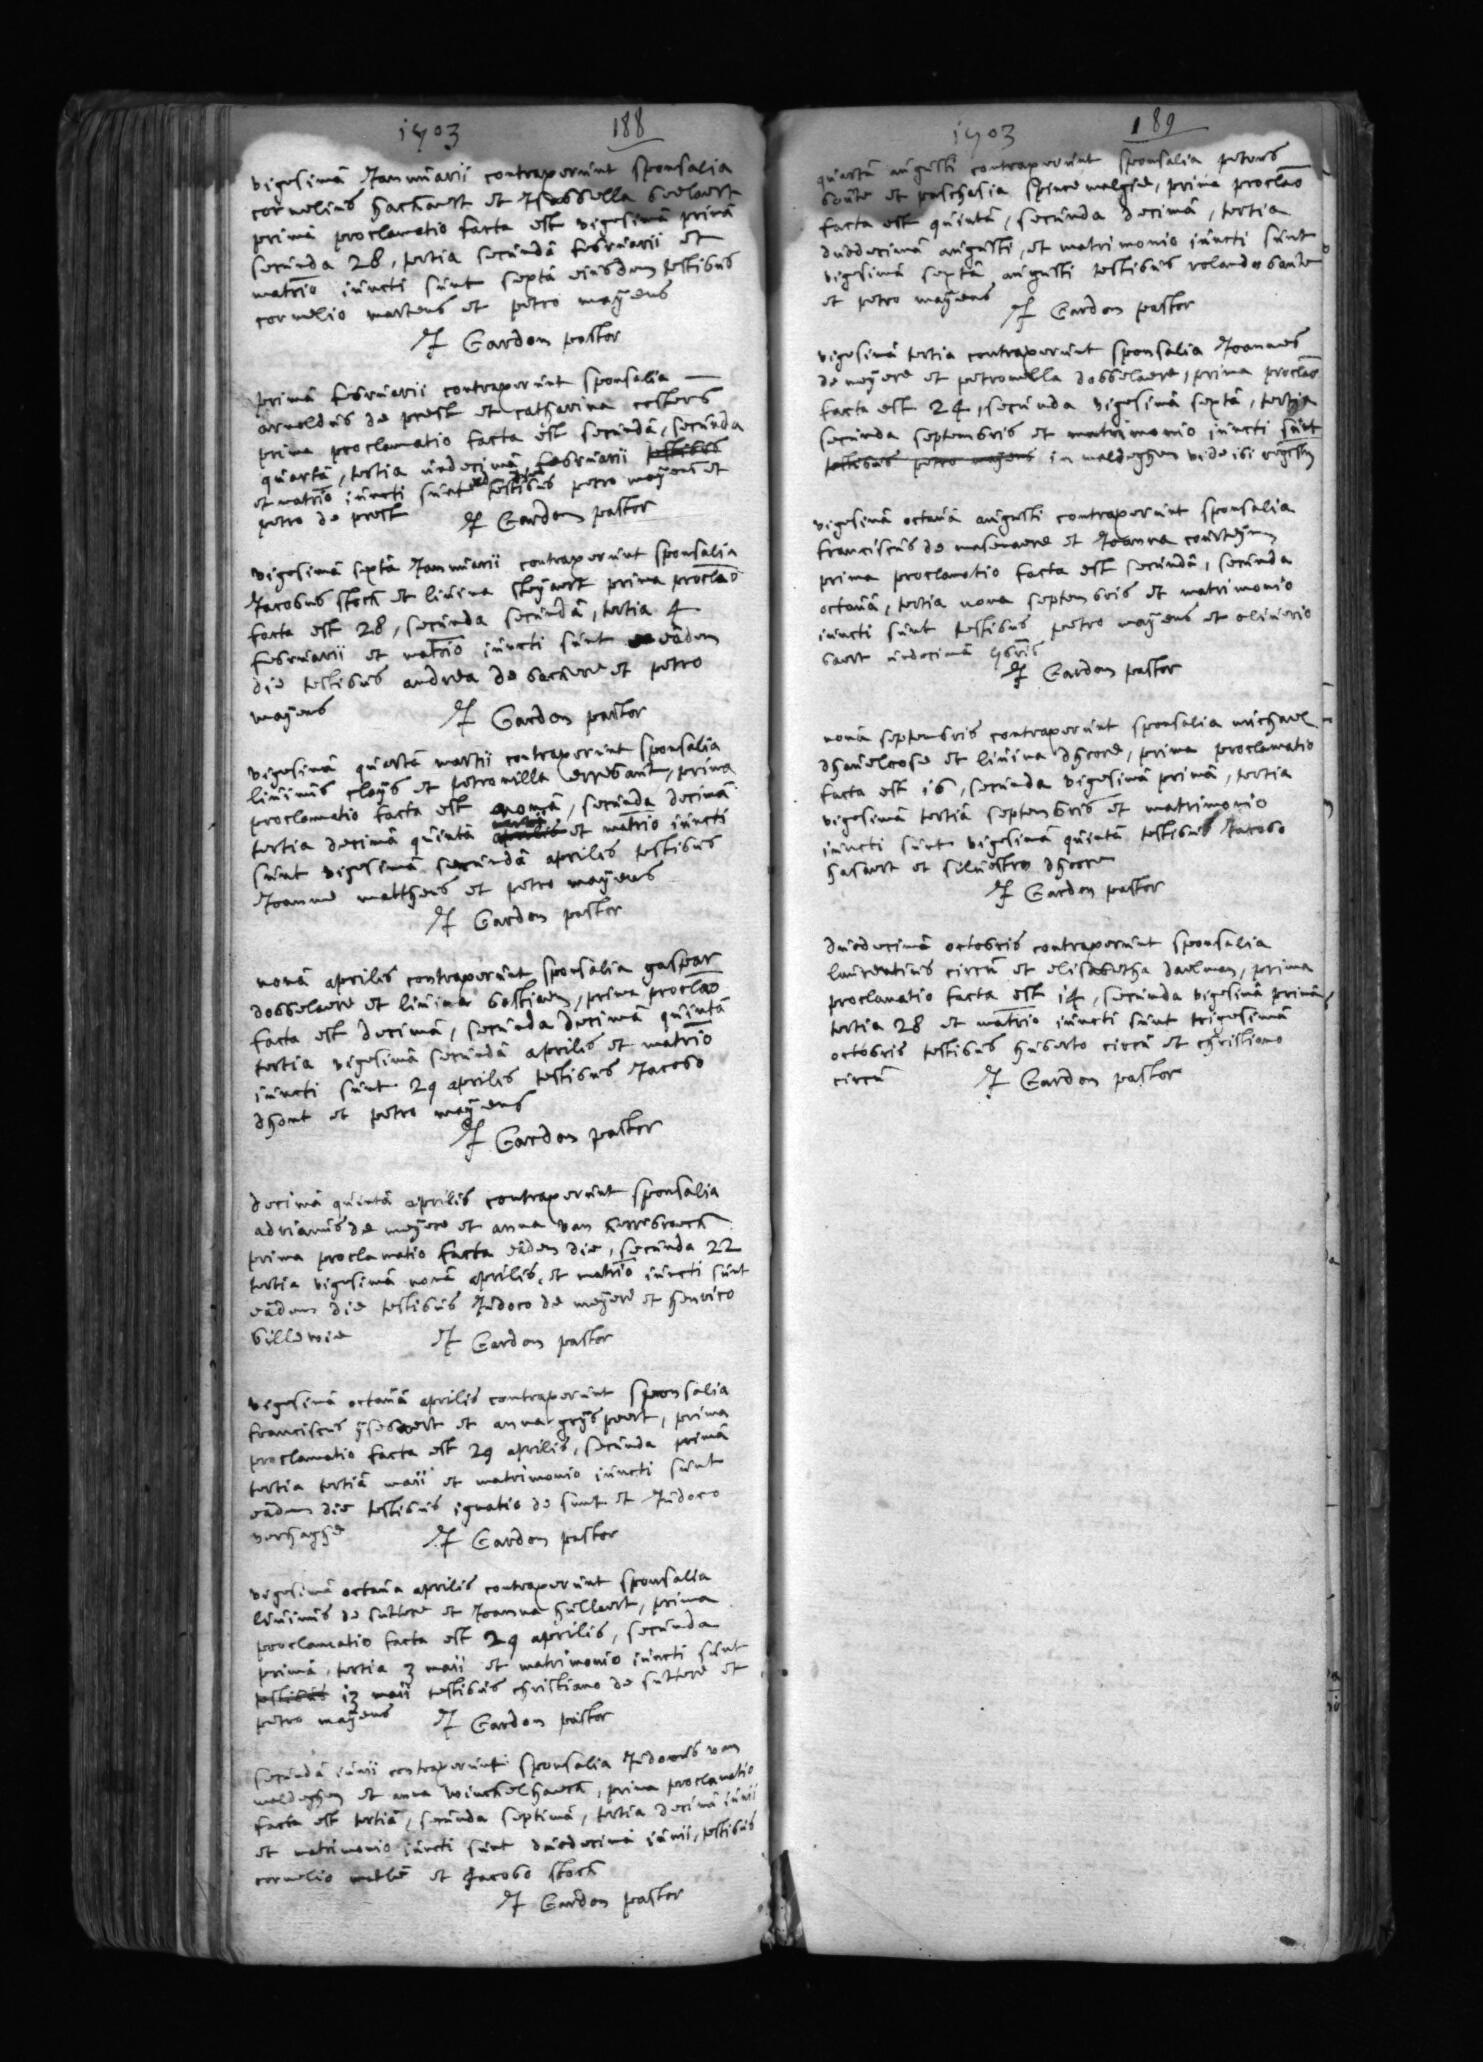 1703 188
vigesimâ Januarii contraxerunt sponsalia
cornelius hachaert et Isabella beelaert
prima proclamatio facta est vigesimâ primâ
secunda 28, tertia secundâ februarii et
matrio iuncti sunt sextâ eiusdem testibus
cornelio martens et petro maÿens
Gardon pastor
primâ februarii contraxerunt sponsalia
arnoldus de prest et catharina costers
prima proclamatio facta est secundâ, secunda
quartâ, tertia undecimâ februarii testibus
et matrio iuncti sunt testibus petro maÿens et
petro de prest
Gardon pastor
vigesimâ sextâ Januarii contraxerunt sponsalia
Jacobus stock et livina steÿaert prima proclao
facta est 28, secunda secundâ, tertia 4
februarii et matrio iuncti sunt eâdem
die testibus andrea de backere et petro
maÿens
Gardon pastor
vigesimâ quartâ martii contraxerunt sponsalia
livinus claÿs et petronilla errebaut, prima
proclamatio facta est nonâ, secunda decimâ
tertia decimâ quintâ aprilis et matrio iuncti
sunt vigesimâ secundâ aprilis testibus
Joanne mattheus et petro maÿens
Gardon pastor
nonâ aprilis contraxerunt sponsalia gaspar
dobbelaere et livina bostijen, prima proclao
facta est decimâ, secunda decimâ quintâ
tertia vigesimâ secundâ aprilis et matrio
iuncti sunt 29 aprilis testibus Jacobo
dhont et petro maÿens
Gardon pastor
decimâ quintâ aprilis contraxerunt sponsalia
adrianus de meÿere et anna van herrebroeck
prima proclamatio facta eâdem die, secunda 22
tertia vigesimâ nonâ aprilis, et matrio iuncti sunt
eâdem die testibus Judoco de meÿere et henrico
billewie
Gardon pastor
vigesimâ octavâ aprilis contraxerunt sponsalia
franciscus ÿsebaert et anna grÿspeert, prima
proclamatio facta est 29 aprilis, secunda primâ
tertia tertiâ maii et matrimonio iuncti sunt
eâdem die testibus ignatio de smet et Judoco
verhaghe
Gardon pastor
vigesimâ octava aprilis contraxerunt sponsalia
livinus de suttere et Joanna hullaert, prima
proclamatio facta est 29 aprilis, secunda
primâ, tertia 3 maii et matrimonio iuncti sunt
testibus 13 maii testibus christiano de suttere et
petro maÿens
Gardon pastor
secundâ iunii contraxerunt sponsalia Judocus van
maldeghem et anna winckelhaeck, prima proclamatio
facta est tertiâ, secunda septimâ, tertia decimâ iunii
et matrimonio iuncti sunt duodecimâ iunii, testibus
cornelio et Jacobo stock
Gardon pastor
1703 189
quartâ augusti contraxerunt sponsalia petrus
bonte et paschasia, prima proclao
facta est quintâ, secunda decimâ, tertia
duodecimâ augusti, et matrimonio iuncti sunt
vigesimâ sextâ augusti testibus rolando bonte
et petro maÿens
Gardon pastor
vigesimâ tertia contraxerunt sponsalia Joannes
de meÿere et petronilla dobbelaere, prima proclao
facta est 24, secunda vigesimâ sextâ, tertia
secunda septembris et matrimonio iuncti sunt
testibus petro maÿens in maldeghem vide ibi
vigesimâ octavâ augusti contraxerunt sponsalia
franciscus de masenaere et Joanna courteÿns
prima proclamatio facta est secundâ, secunda
octavâ, tertia nona septembris et matrimonio
iuncti sunt testibus petro maÿens et oliverio
baert undecimâ 7bris
Gardon pastor
nonâ septembris contraxerunt sponsalia michael
dhauelose et livina dhoore, prima proclamatio
facta est 16, secunda vigesimâ primâ, tertia
vigesimâ tertiâ septembris et matrimonio
iuncti sunt vigesimâ quintâ testibus Jacobo
hasaert et silvestro dhoore
Gardon pastor
duodecimâ octobris contraxerunt sponsalia
laurentius circu et elisabetha daelman, prima
proclamatio facta est 14, secunda vigesimâ primâ
tertia 28 et matrio iuncti sunt trigesimâ
octobris testibus huberto circu et christiano
circu
Gardon pastor